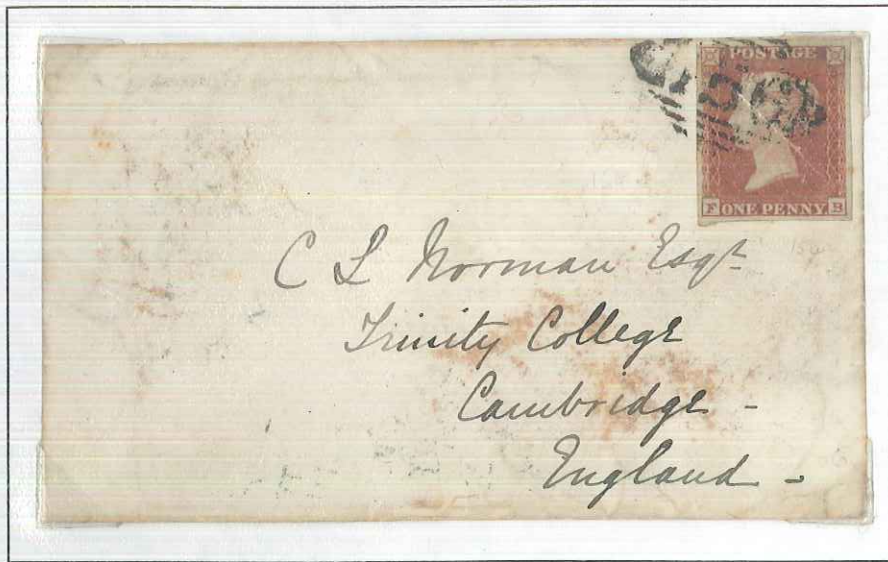 POSTAGE
F ONE PENNY B
C L Norman Esqr
Trinity College
Cambridge -
England -